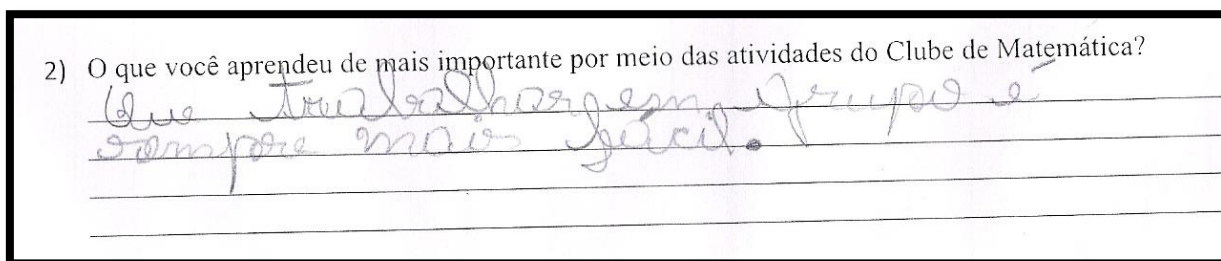 2) O que você aprendeu de mais importante por meio das atividades do Clube de Matemática?
Que trabalhar em grupo é
sempre mais fácil.